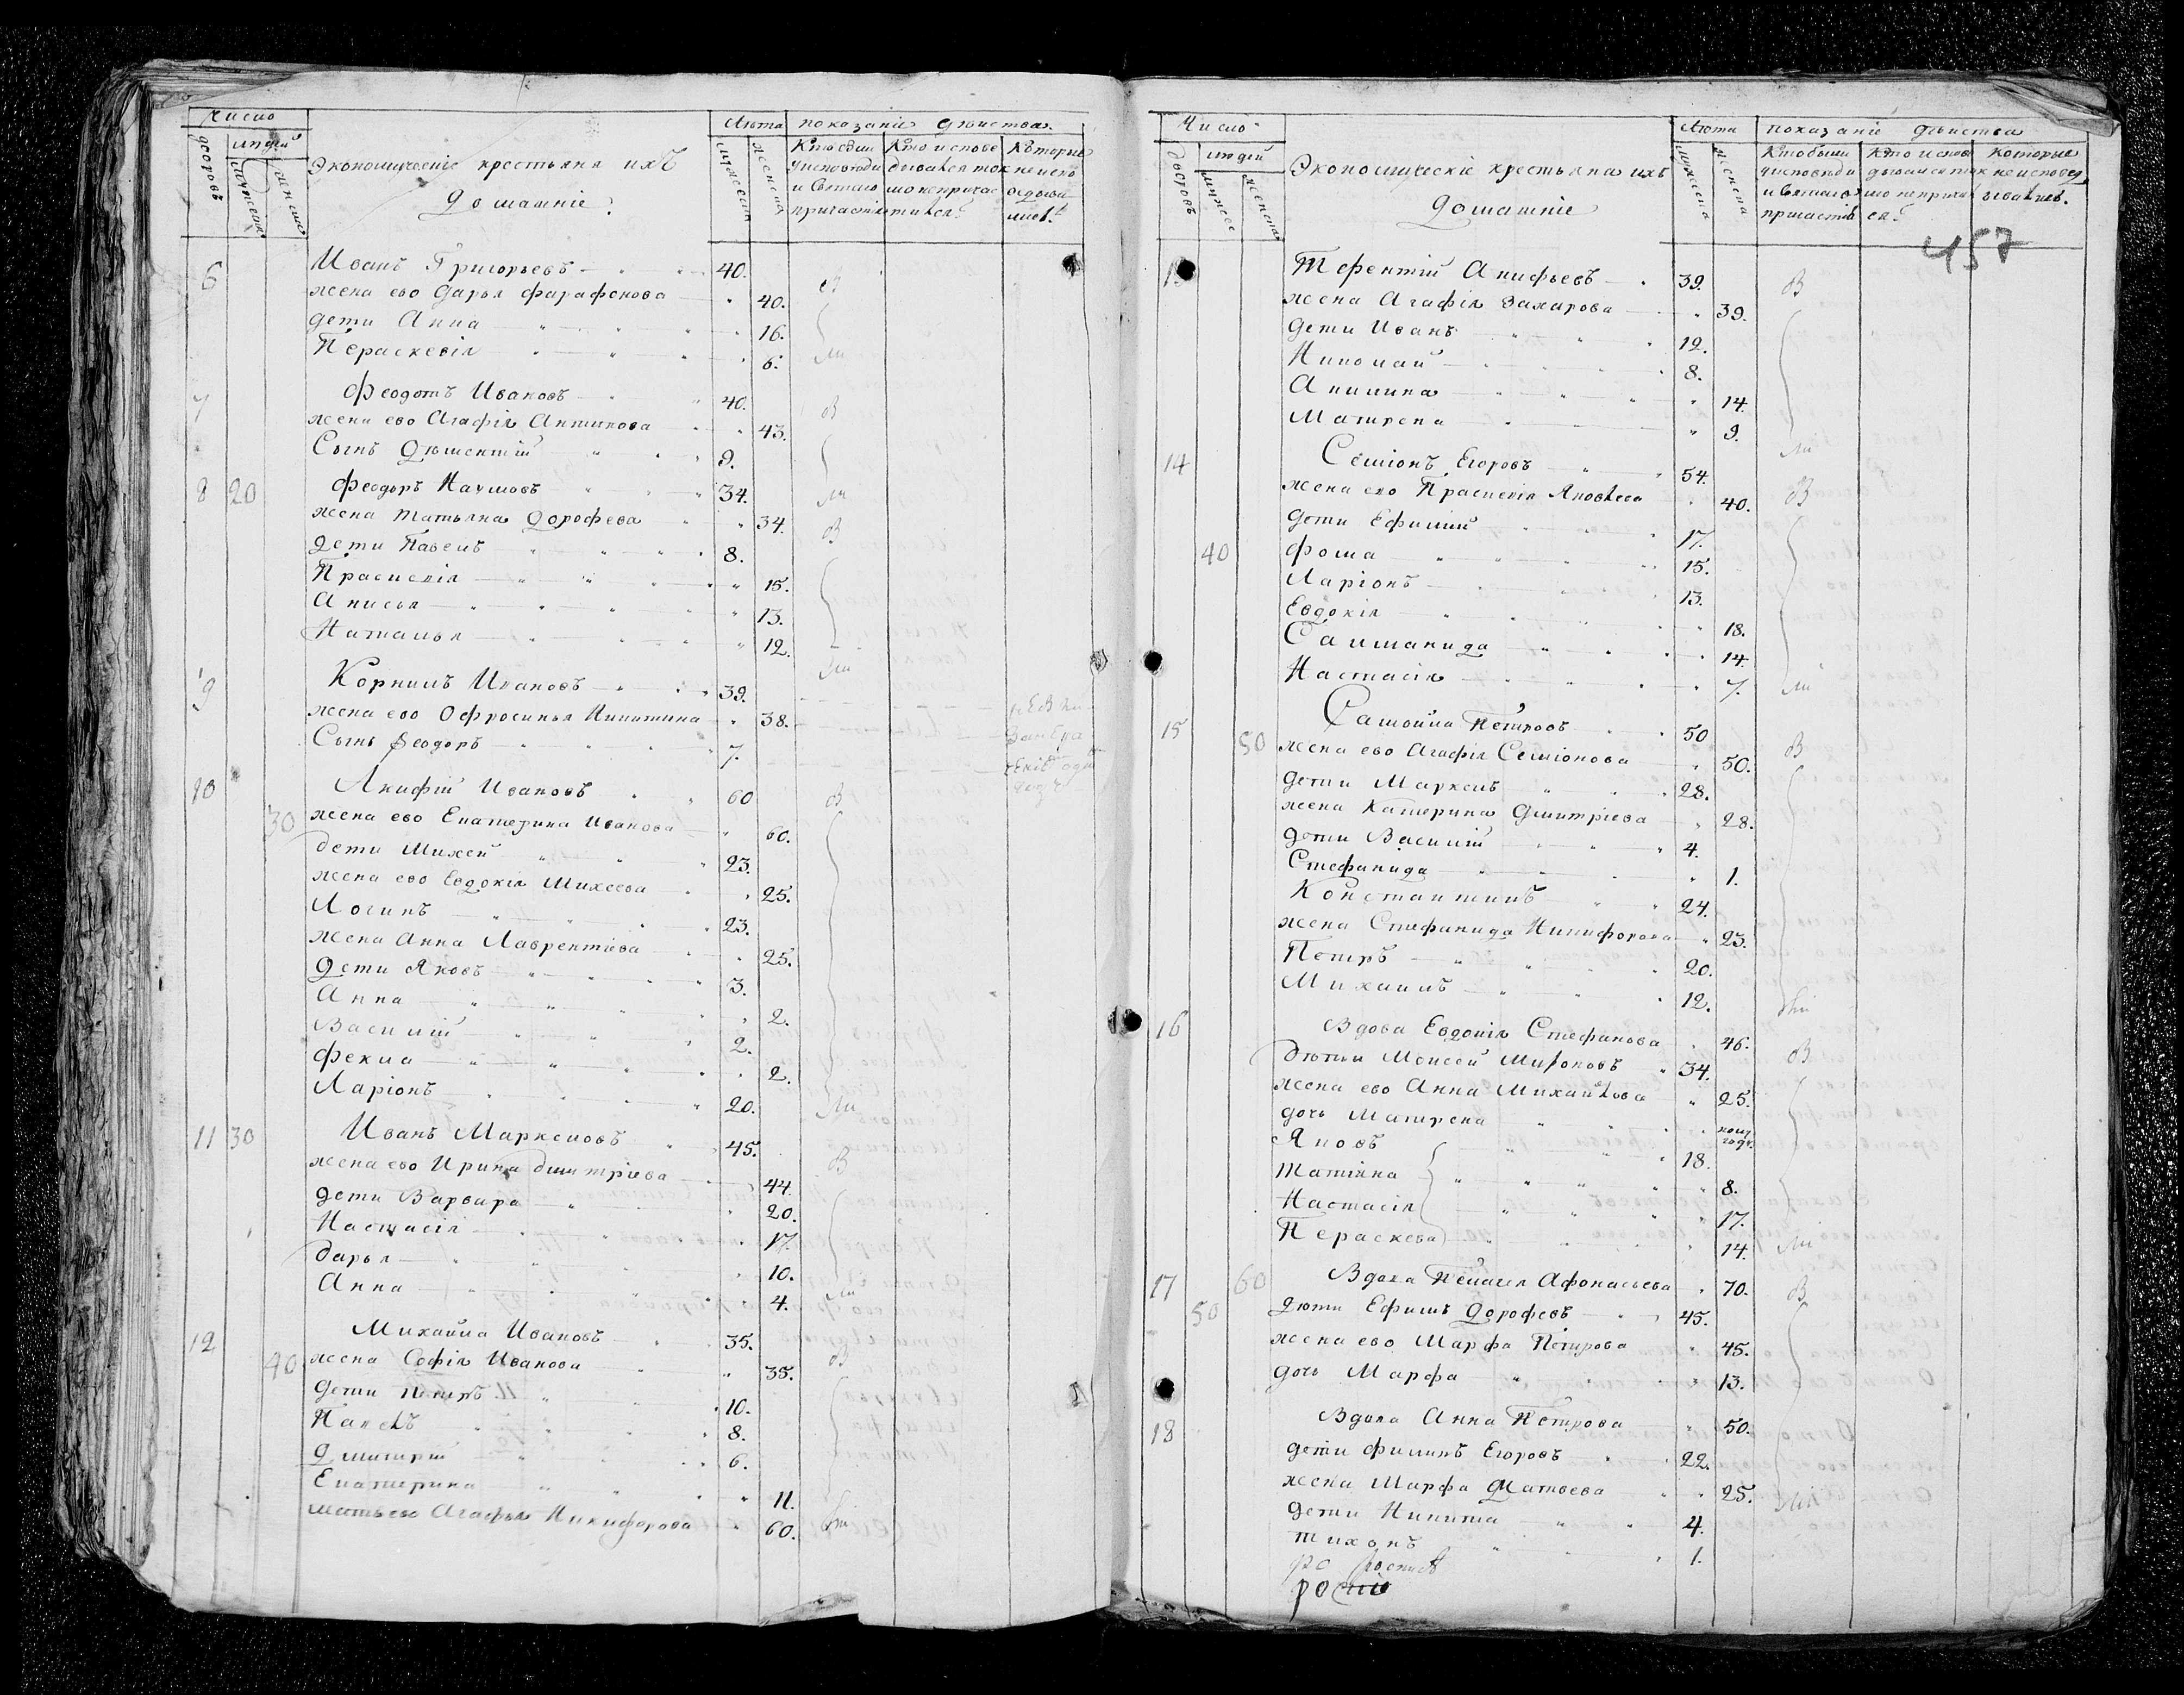 Число
Лѣта показаніе дѣиства.
дворовъ людей
мужеска женска
Экономическіе крестьяня ихъ
домашніе
мужеска женска
Кто были Кто испове Которые
уисповѣди дывался ток неиспо
и Святаго мо непричас ведыва
причастія тился. лись.
6 Иванъ Григорьевъ 40. В
жена ево Дарья Фарафонова 40.
дети Анна 16.
Пераскевія 6. ли
7 Феодотъ Ивановъ 40. В
жена ево Агафія Антипова 43.
Сынъ Дѣментій 9.
8 20 Феодоръ Наумовъ 34. ли
жена Татьяна Дорофева 34. В
дети Павелъ 8.
Праскевія 15.
Анисья 13.
Наталья 12. ли
9 Корнилъ Ивановъ 39.
жена ево Офросинья Никитина 38.
Сынъ Феодоръ 7.
10 Акифій Ивановъ 60 В
30 жена ево Екатерина Иванова 60.
дети Михей 23.
жена ево Евдокія Михеева 25.
Логинъ 23.
жена Анна Лаврентіева 25.
дети Яковъ 3.
Анна 2.
Василій 2.
Фекла 2.
Ларіонъ 20. ли
11 30 Иванъ Маркеловъ 45.
жена ево Ирина Дмитріева 44. В
дети Варвара 20.
Настасія 17.
Дарья 10.
Анна 4. ли
12 Михайла Ивановъ 35.
40 жена Софія Иванова 35. В
дети Петръ 10.
Павелъ 8.
Дмитрій 6.
Екатерина 11.
мать ево Агафья Никифорова 60.
Число
Лѣта показаніе дѣиства
дворовъ людей
мужеск женска
Экономическіе крестьяна ихъ
домашніе
мужеска женска
Кто были Кто испов которые
уисповѣди дывался ток неисповед
и Святаго мо неприча ывались.
причастія ся.
457
1 Терентій Анифьевъ 39. В
жена Агафія Захарова 39.
дети Иванъ 12.
Николай 8.
Акилина 14.
Матрена 9. ли
14 Семіонъ Егоровъ 54.
жена ево Праскевія Яковлева 40. В
дети Ефимій 17.
40 Фома 15.
Ларіонъ 13.
Евдокія 18.
Саламанида 14.
Настасія 7. ли
15 Самойла Петровъ 50
50 жена ево Агафія Семіонова 50. В
дети Маркелъ 28.
жена Катерина Дмитріева 28.
дети Василій 4.
Стефанида 1.
Константинъ 24.
жена Стефанида Никифорова 23.
Петръ 20.
Михаилъ 12. ли
16 Вдова Евдокія Стефанова 46.
дѣтьи Моисей Мироновъ 34. В
жена ево Анна Михайлова 25.
дочь Матрена полу год.
Яковъ 18.
Татіяна 8.
Настасія 17.
Пераскева 14. ли
17 60 Вдова Пелагея Афонасьева 70. В
50 дѣти Ефимъ Дорофевъ 45.
жена ево Марфа Петрова 45.
дочь Марфа 13.
18 Вдова Анна Петрова 50.
дети Филипъ Егоровъ 22.
жена Марфа Матвева 25. ли
дети Никита 4.
Тихонъ 1.